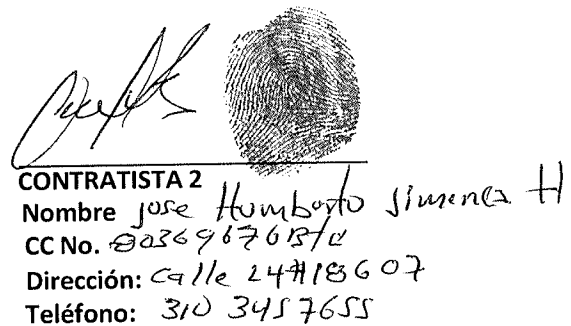 CONTRATISTA 2
Nombre Jose Humberto Jimenez H
CC No.
Dirección: Calle 24#
Teléfono: 310 3457655